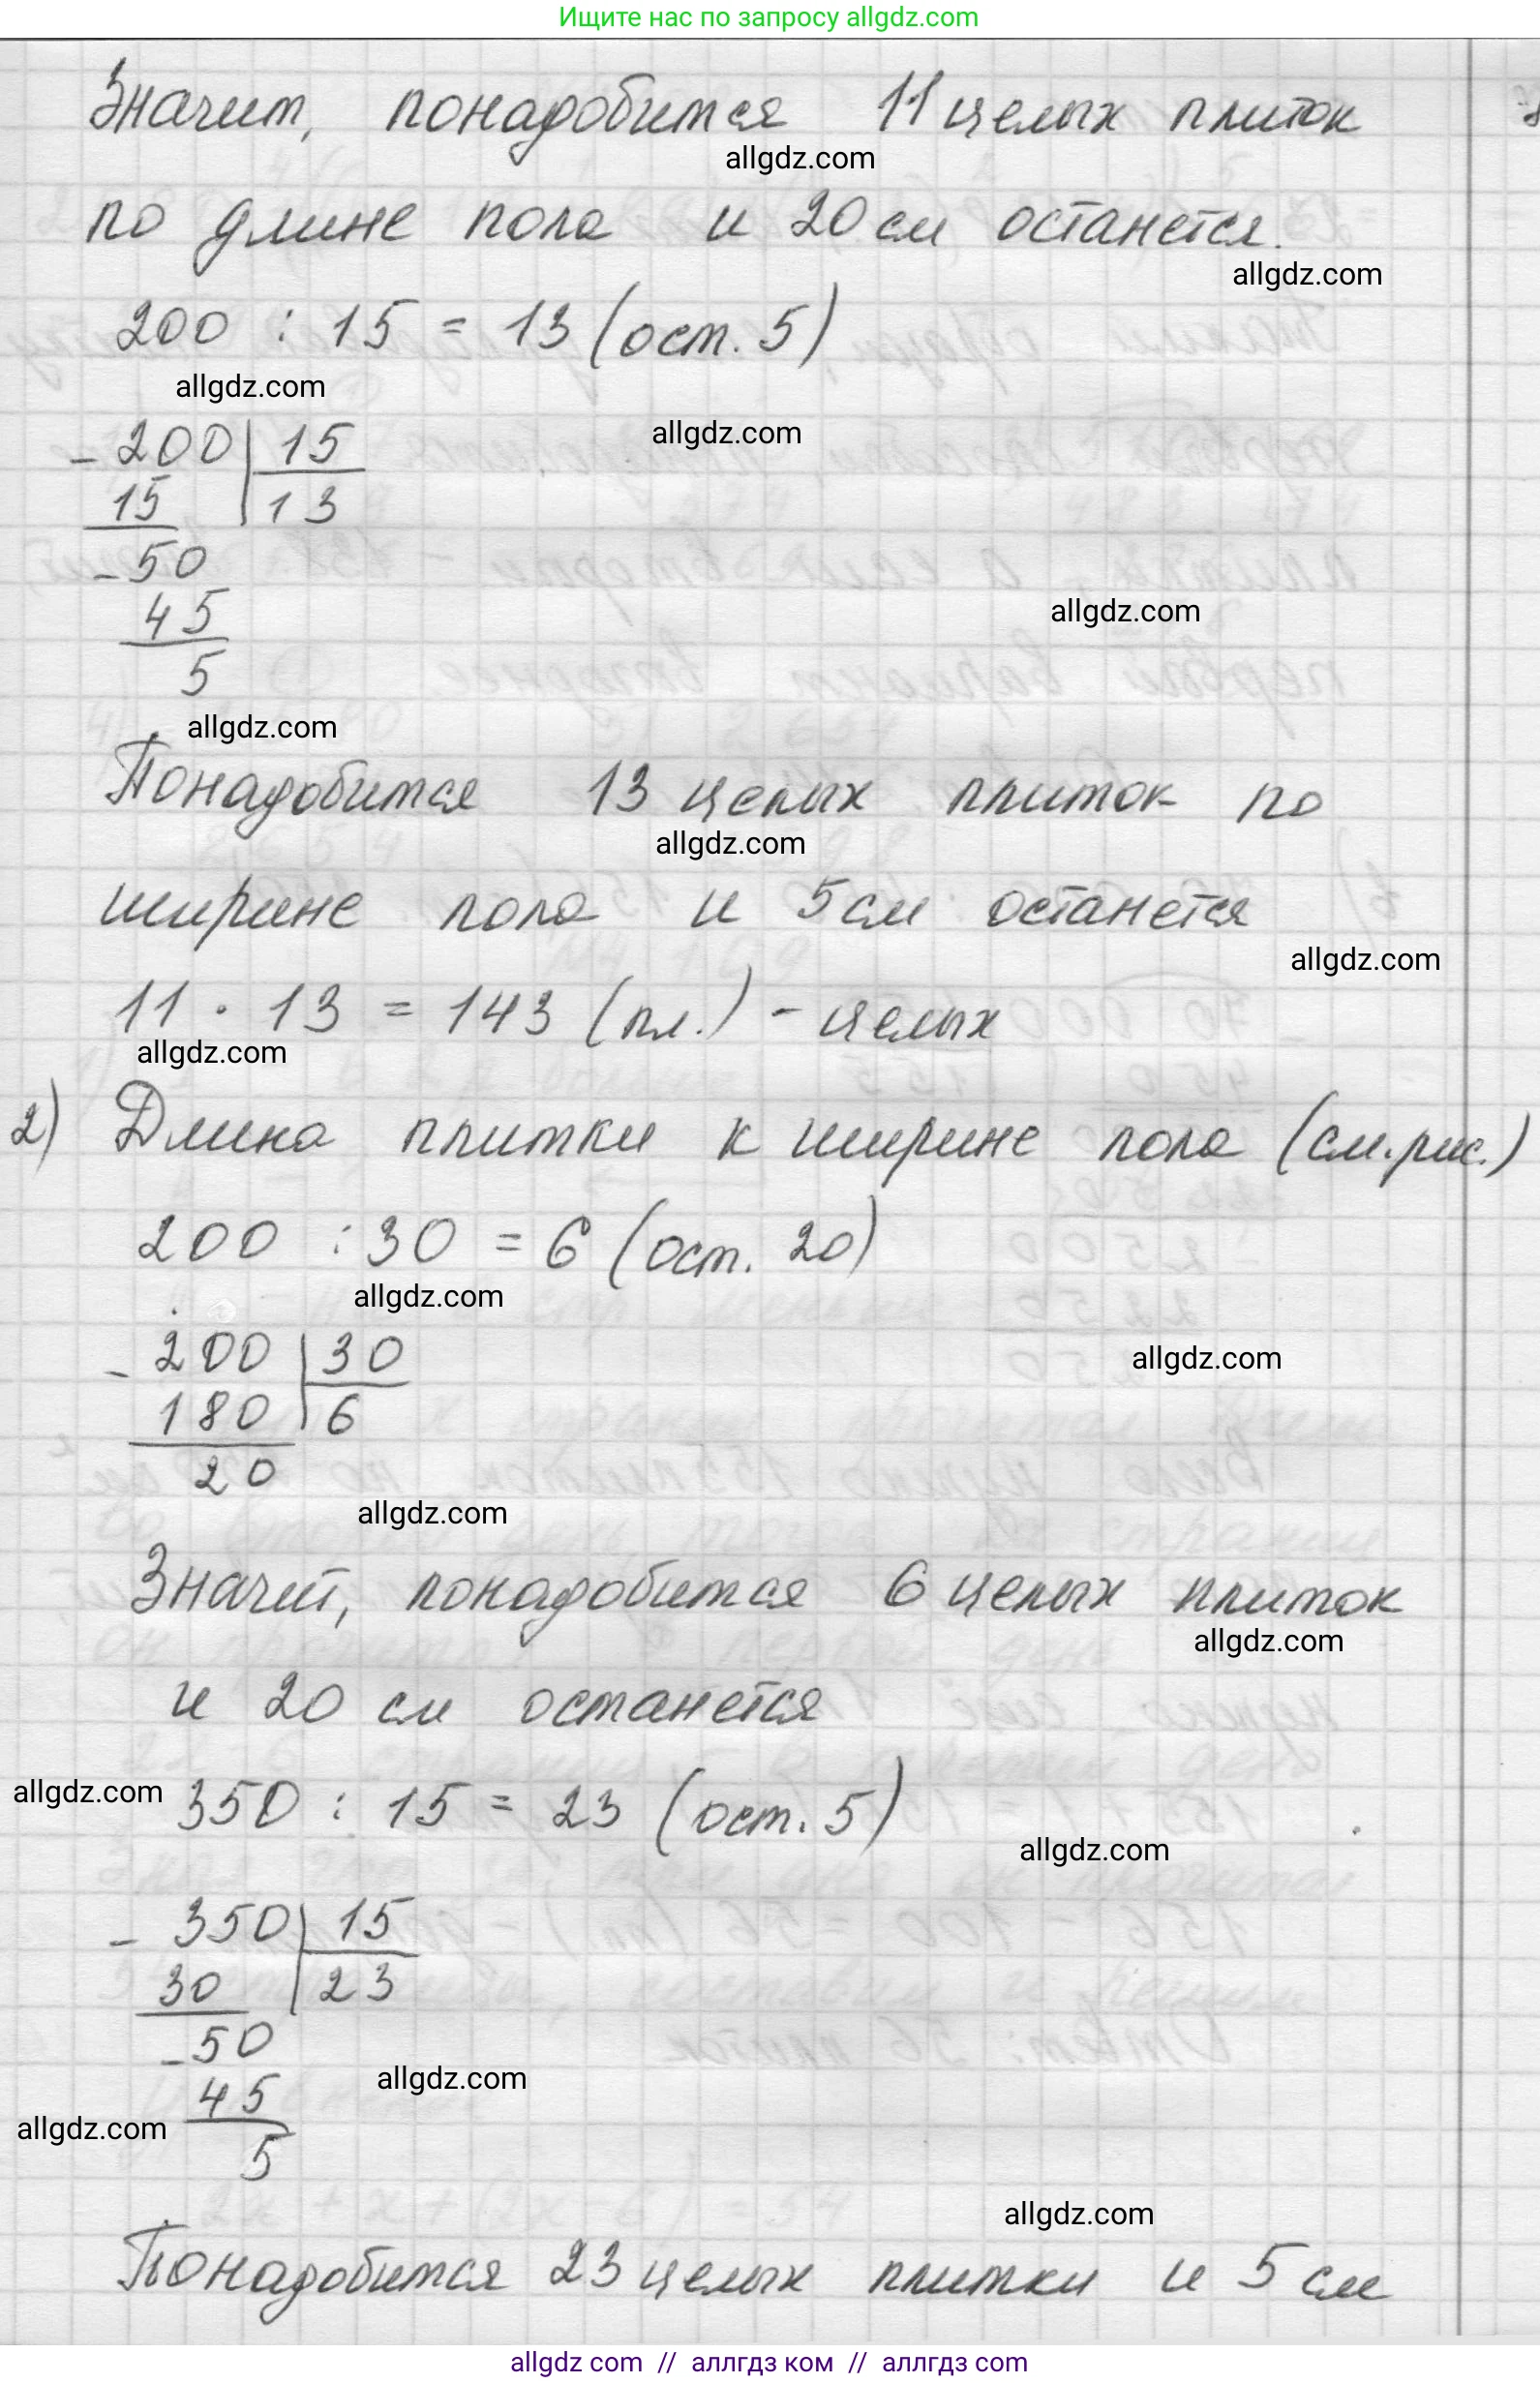 Ищите нас по запросу allgdz.com
Значит, понадобится 11 целых плиток
allgdz.com
по длине пола и 20 см останется.
allgdz.com
200 : 15 = 13 (ост. 5)
allgdz.com
allgdz.com
- 200 | 15
15 | 13
- 50
45
allgdz.com
5
allgdz.com
Понадобится 13 целых плиток по
allgdz.com
ширине пола и 5 см останется
allgdz.com
11 · 13 = 143 (пл.) - целых
allgdz.com
2) Длина плитки к ширине пола (см. рис.)
200 : 30 = 6 (ост. 20)
allgdz.com
- 200 | 30
allgdz.com
180 | 6
20
allgdz.com
Значит, понадобится 6 целых плиток
allgdz.com
и 20 см останется
allgdz.com
350 : 15 = 23 (ост. 5)
allgdz.com
- 350 | 15
30 | 23
- 50
allgdz.com
45
allgdz.com
5
allgdz.com
Понадобится 23 целых плитки и 5 см
allgdz com // аллгдз ком // аллгдз com